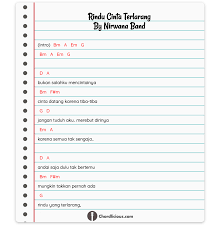 Rindu Cinta Terlarang
By Nirwana Band
(Intro) Bm A Em G
Bm A Em G
D A
bukan salahku mencintainya
Bm F#m
cinta datang karena tiba-tiba
G D
jangan tuduh aku, merebut dirinya
Em A
karena semua tak sengaja..
D A
andai saja dulu tak bertemu
Bm F#m
mungkin takkan pernah ada
G
rindu yang terlarang..
Chordlicious.com